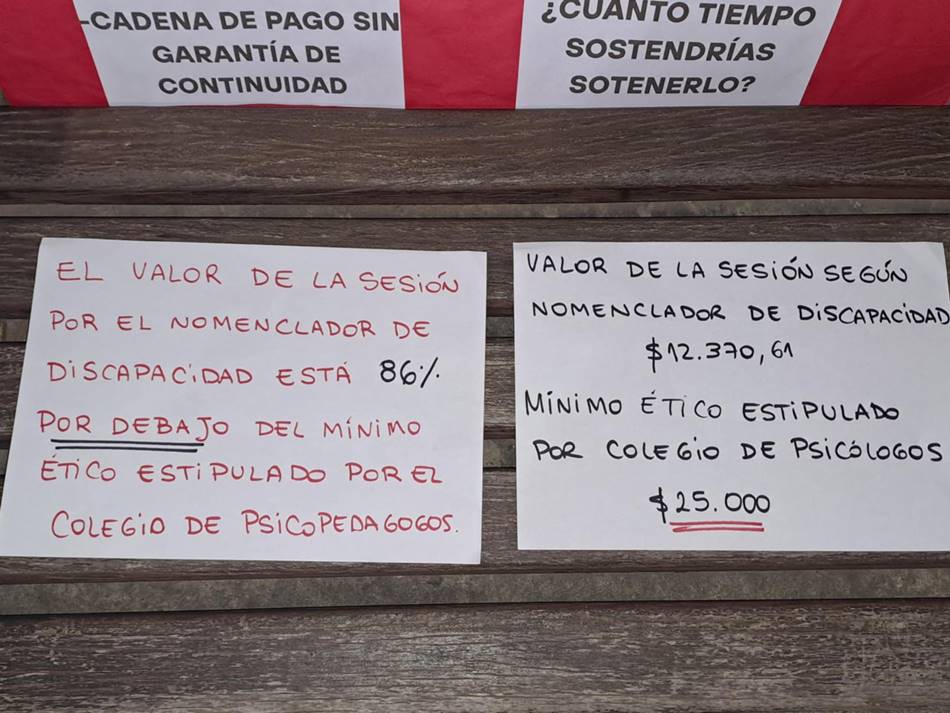 -CADENA DE PAGO SIN
GARANTÍA DE
CONTINUIDAD
¿CUÁNTO TIEMPO
SOSTENDRÍAS
SOTENERLO?
EL VALOR DE LA SESIÓN
POR EL NOMENCLADOR DE
DISCAPACIDAD ESTÁ 86%
POR DEBAJO DEL MÍNIMO
ÉTICO ESTIPULADO POR EL
COLEGIO DE PSICOPEDAGOGOS.
VALOR DE LA SESIÓN SEGÚN
NOMENCLADOR DE DISCAPACIDAD
$12.370,61
MÍNIMO ÉTICO ESTIPULADO
POR COLEGIO DE PSICÓLOGOS
$25.000